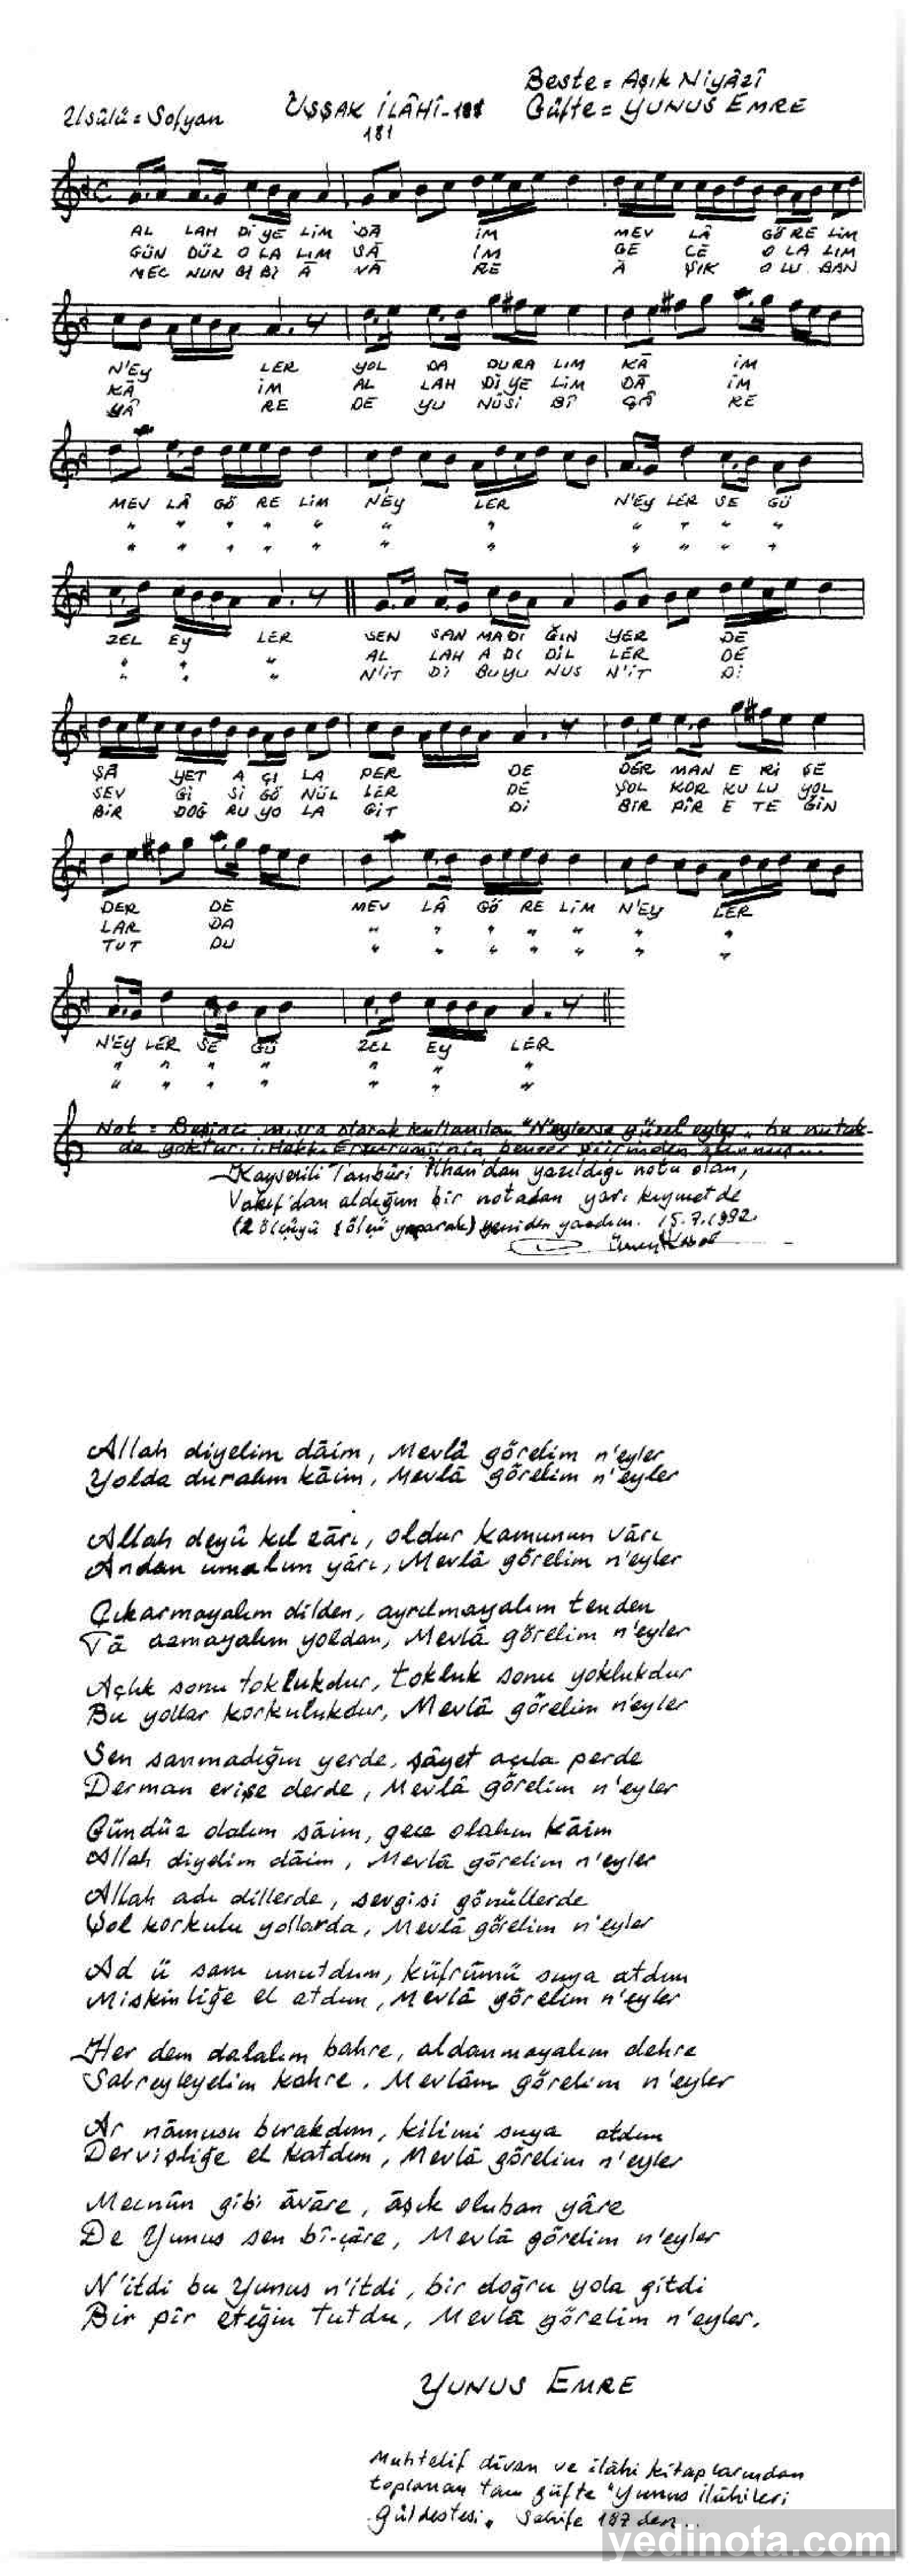 Beste = Aşık Niyâzî
Usûlü = Sofyan UŞŞAK İLÂHÎ - 181 Güfte = YUNUS EMRE
181
AL LAH Dİ YE LİM DÂ İM MEV LÂ GÖ RE LİM
GÜN DÜZ O LA LIM SÂ İM GE CE O LA LIM
MEC NUN Gİ Bİ Â VÂ RE Â ŞIK O LU BAN
N'EY LER YOL DA DURA LIM KÂ İM
KÂ İM AL LAH Dİ YE LİM DÂ İM
YÂ RE DE YU NÛSİ BÎ ÇÂ RE
MEV LÂ GÖ RE LİM N'EY LER N'EY LER SE GÜ
" " " " " " " " " " "
" " " " " " " " " " "
ZEL EY LER SEN SAN MADI ĞIN YER DE
" " " AL LAH A DI DİL LER DE
" " " N'İT Dİ BU YU NUS N'İT Dİ
ŞÂ YET A ÇI LA PER DE DER MAN E Rİ ŞE
SEV Gİ Sİ GÖ NÜL LER DE ŞOL KOR KU LU YOL
BİR DOĞ RU YO LA GİT Dİ BİR PÎR E TE ĞİN
DER DE MEV LÂ GÖ RE LİM N'EY LER
LAR DA " " " " " " "
TUT DU " " " " " " "
N'EY LER SE GÜ ZEL EY LER
" " " " " " "
" " " " " " "
Not = Beşinci mısra olarak kullanılan "N'eylerse güzel eyler" bu nutuk-
da yoktur. İ. Hakkı Erzurumî'nin benzer şiirinden alınmış...
Kayserili Tanbûri İlhan'dan yazıldığı notu olan,
Vakıf'dan aldığım bir notadan yarı kıymetde
(2 ölçüyü 1 ölçü yaparak) yeniden yazdım. 15.7.1992
Allah diyelim dâim, Mevlâ görelim n'eyler
Yolda duralım kâim, Mevlâ görelim n'eyler
Allah deyû kıl zârı, oldur kamunun vârı
Andan umalım yârı, Mevlâ görelim n'eyler
Çıkarmayalım dilden, ayrılmayalım tenden
Tâ azmayalım yoldan, Mevlâ görelim n'eyler
Açlık sonu toklukdur, tokluk sonu yoklukdur
Bu yollar korkulukdur, Mevlâ görelim n'eyler
Sen sanmadığın yerde, şâyet açıla perde
Derman erişe derde, Mevlâ görelim n'eyler
Gündüz olalım sâim, gece olalım kâim
Allah diyelim dâim, Mevlâ görelim n'eyler
Allah adı dillerde, sevgisi gönüllerde
Şol korkulu yollarda, Mevlâ görelim n'eyler
Ad ü sanı unutdum, küfrümü suya atdım
Miskinliğe el atdım, Mevlâ görelim n'eyler
Her dem dalalım bahre, aldanmayalım dehre
Sabreyleyelim kahre, Mevlâm görelim n'eyler
Ar nâmusu bırakdım, kilimi suya atdım
Dervişliğe el katdım, Mevlâ görelim n'eyler
Mecnûn gibi âvâre, âşık oluban yâre
De Yunus sen bî-çâre, Mevlâ görelim n'eyler
N'itdi bu Yunus n'itdi, bir doğru yola gitdi
Bir pîr eteğin tutdu, Mevlâ görelim n'eyler.
YUNUS EMRE
Muhtelif dîvan ve ilâhi kitaplarından
toplanan tam güfte "Yunus ilâhileri
Güldestesi" Sahife 187 den..
yedinota.com